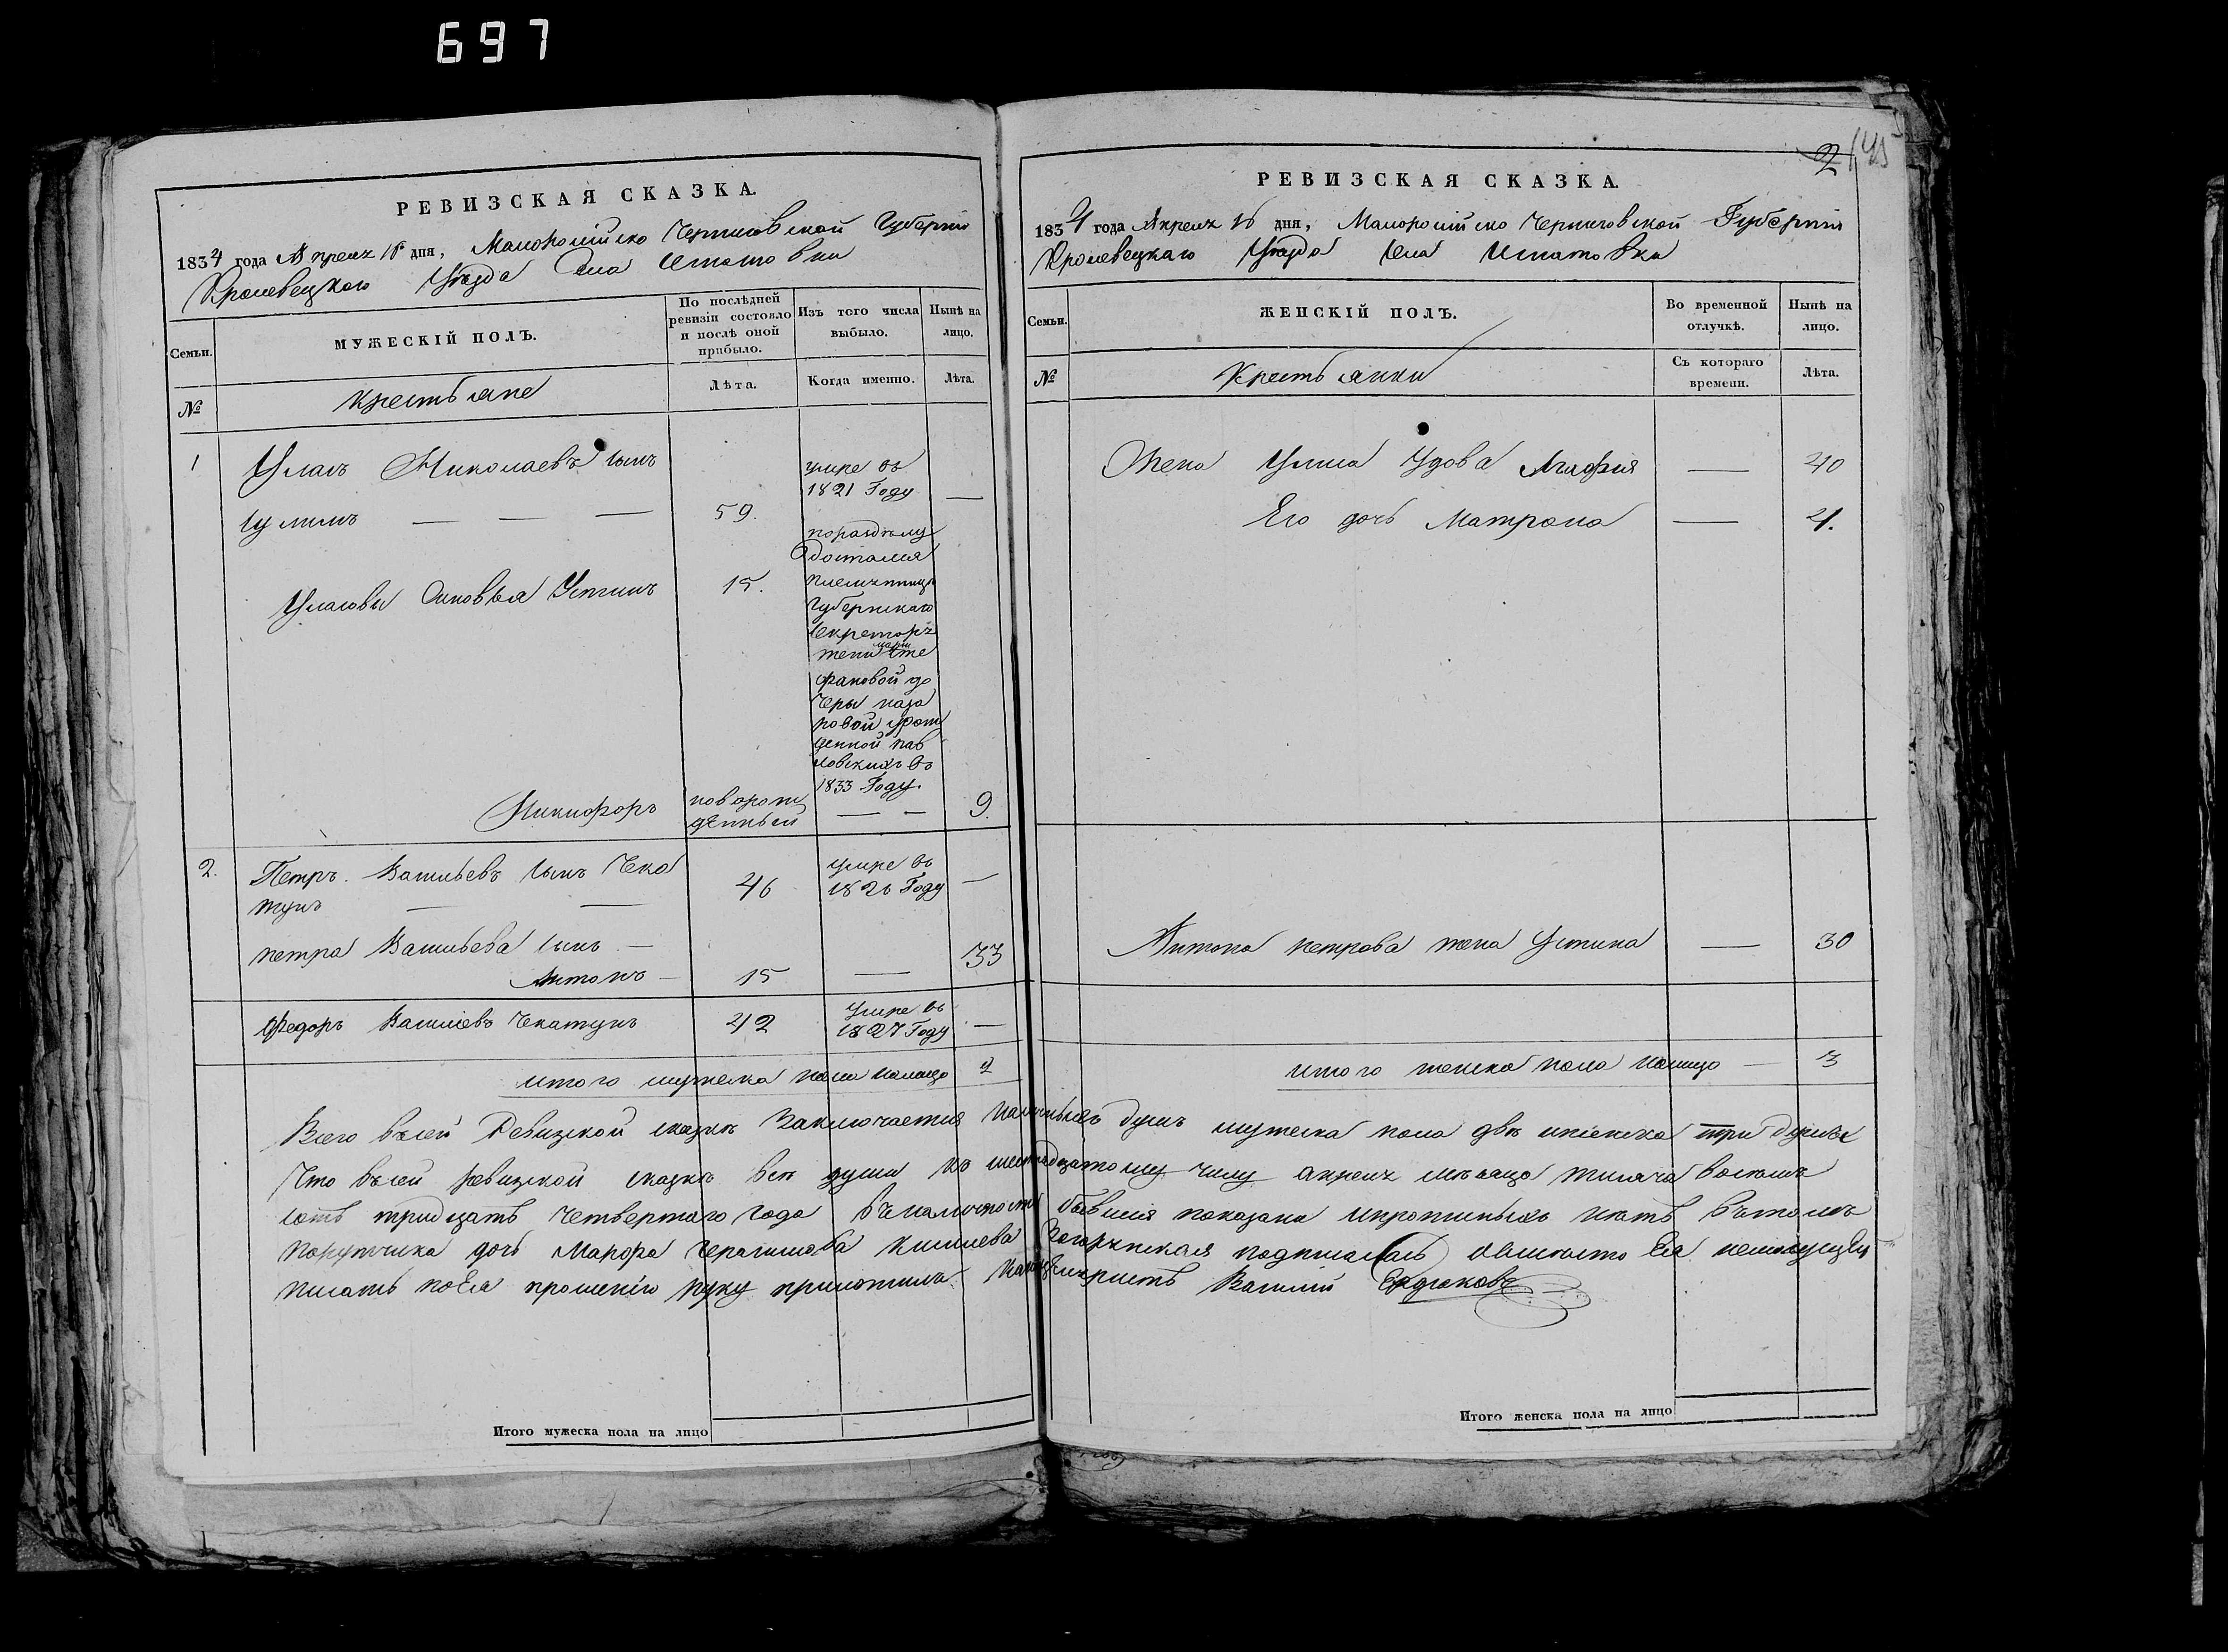 697
РЕВИЗСКАЯ СКАЗКА.
1834 года Апреля 16 дня, Малоросiйско Черниговской Губернiи
Кролевецкого Уѣзда Села Игнатовки
Семьи.
МУЖЕСКІЙ ПОЛЪ.
По послѣдней ревизіи состояло и послѣ оной прибыло.
Изъ того числа выбыло.
Нынѣ на лицо.
№
Крестьяне
Лѣта.
Когда именно.
Лѣта.
1
Уласъ Николаевъ сынъ
59.
умре въ
1821 Году —
поразделу
достался
племяннице
Губернскаго
Секретаря
жени марiи Сте
фановой до
чери наза
ровой урож
денной пав
ловскихъ въ
1833 Году.
Уласовы Сыновья Устинъ 15.
Никифоръ
новорож
денный — — 9.
2.
Петръ Васильевъ сынъ Чека
тунъ — — 46
умре въ
1826 Году —
петра Васильева сынъ —
Антонъ — 15 — 33
Федоръ Васил​iевъ Чекатунъ 42
умре въ
1827 Году —
итого мужеска пола налицо 2
2
РЕВИЗСКАЯ СКАЗКА.
1834 года Апреля 16 дня, Малоросiйско Черниговской Губернiи
Кролевецкаго Уѣзда Села Игнатовки
Семьи.
ЖЕНСКІЙ ПОЛЪ.
Во временной отлучкѣ.
Нынѣ на лицо.
№
Крестьянки
Съ котораго времени.
Лѣта.
Жена Уласа Удова Агафия — 40
Его дочь Матрона — 4.
Антона петрова жена Устина — 30
итого женска пола налицо — 3
Всего всей Ревизской сказкѣ Заключается наличныхъ душъ мужеска пола двѣ иженска три душы
Что всей ревизской сказкѣ всѣ души къ шестнадцатому числу апреля месяца тисяча восемъ
сотъ тридцать четвертаго года вналичности бывшiя показани ипропиныхъ нѣтъ вътомъ
порутчика дочь Марфа Герасимова подписалась авместо Ея немогущей
писать поЕя прошенiю руку приложилъ Канцеляристъ Василий
Итого мужеска пола на лицо
Итого женска пола на лицо